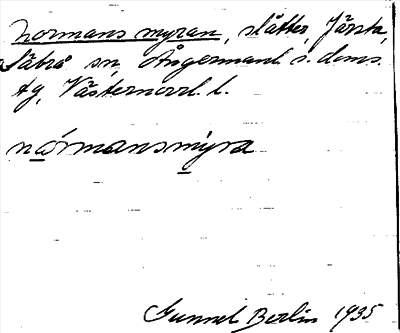 Normans myran, slåtter, Järsta,
Säbrå sn, Ångermanl. s. doms.
tg, Västernorrl. l.
nórmansmýra
Gunnel Berlin 1935